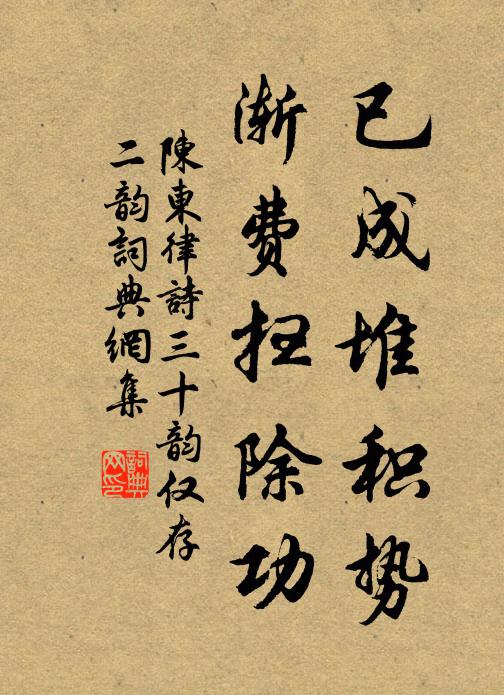 已成堆积势
渐费扫除功
陳東律詩三十韵仅存
二韵詞典網集
詞典網印